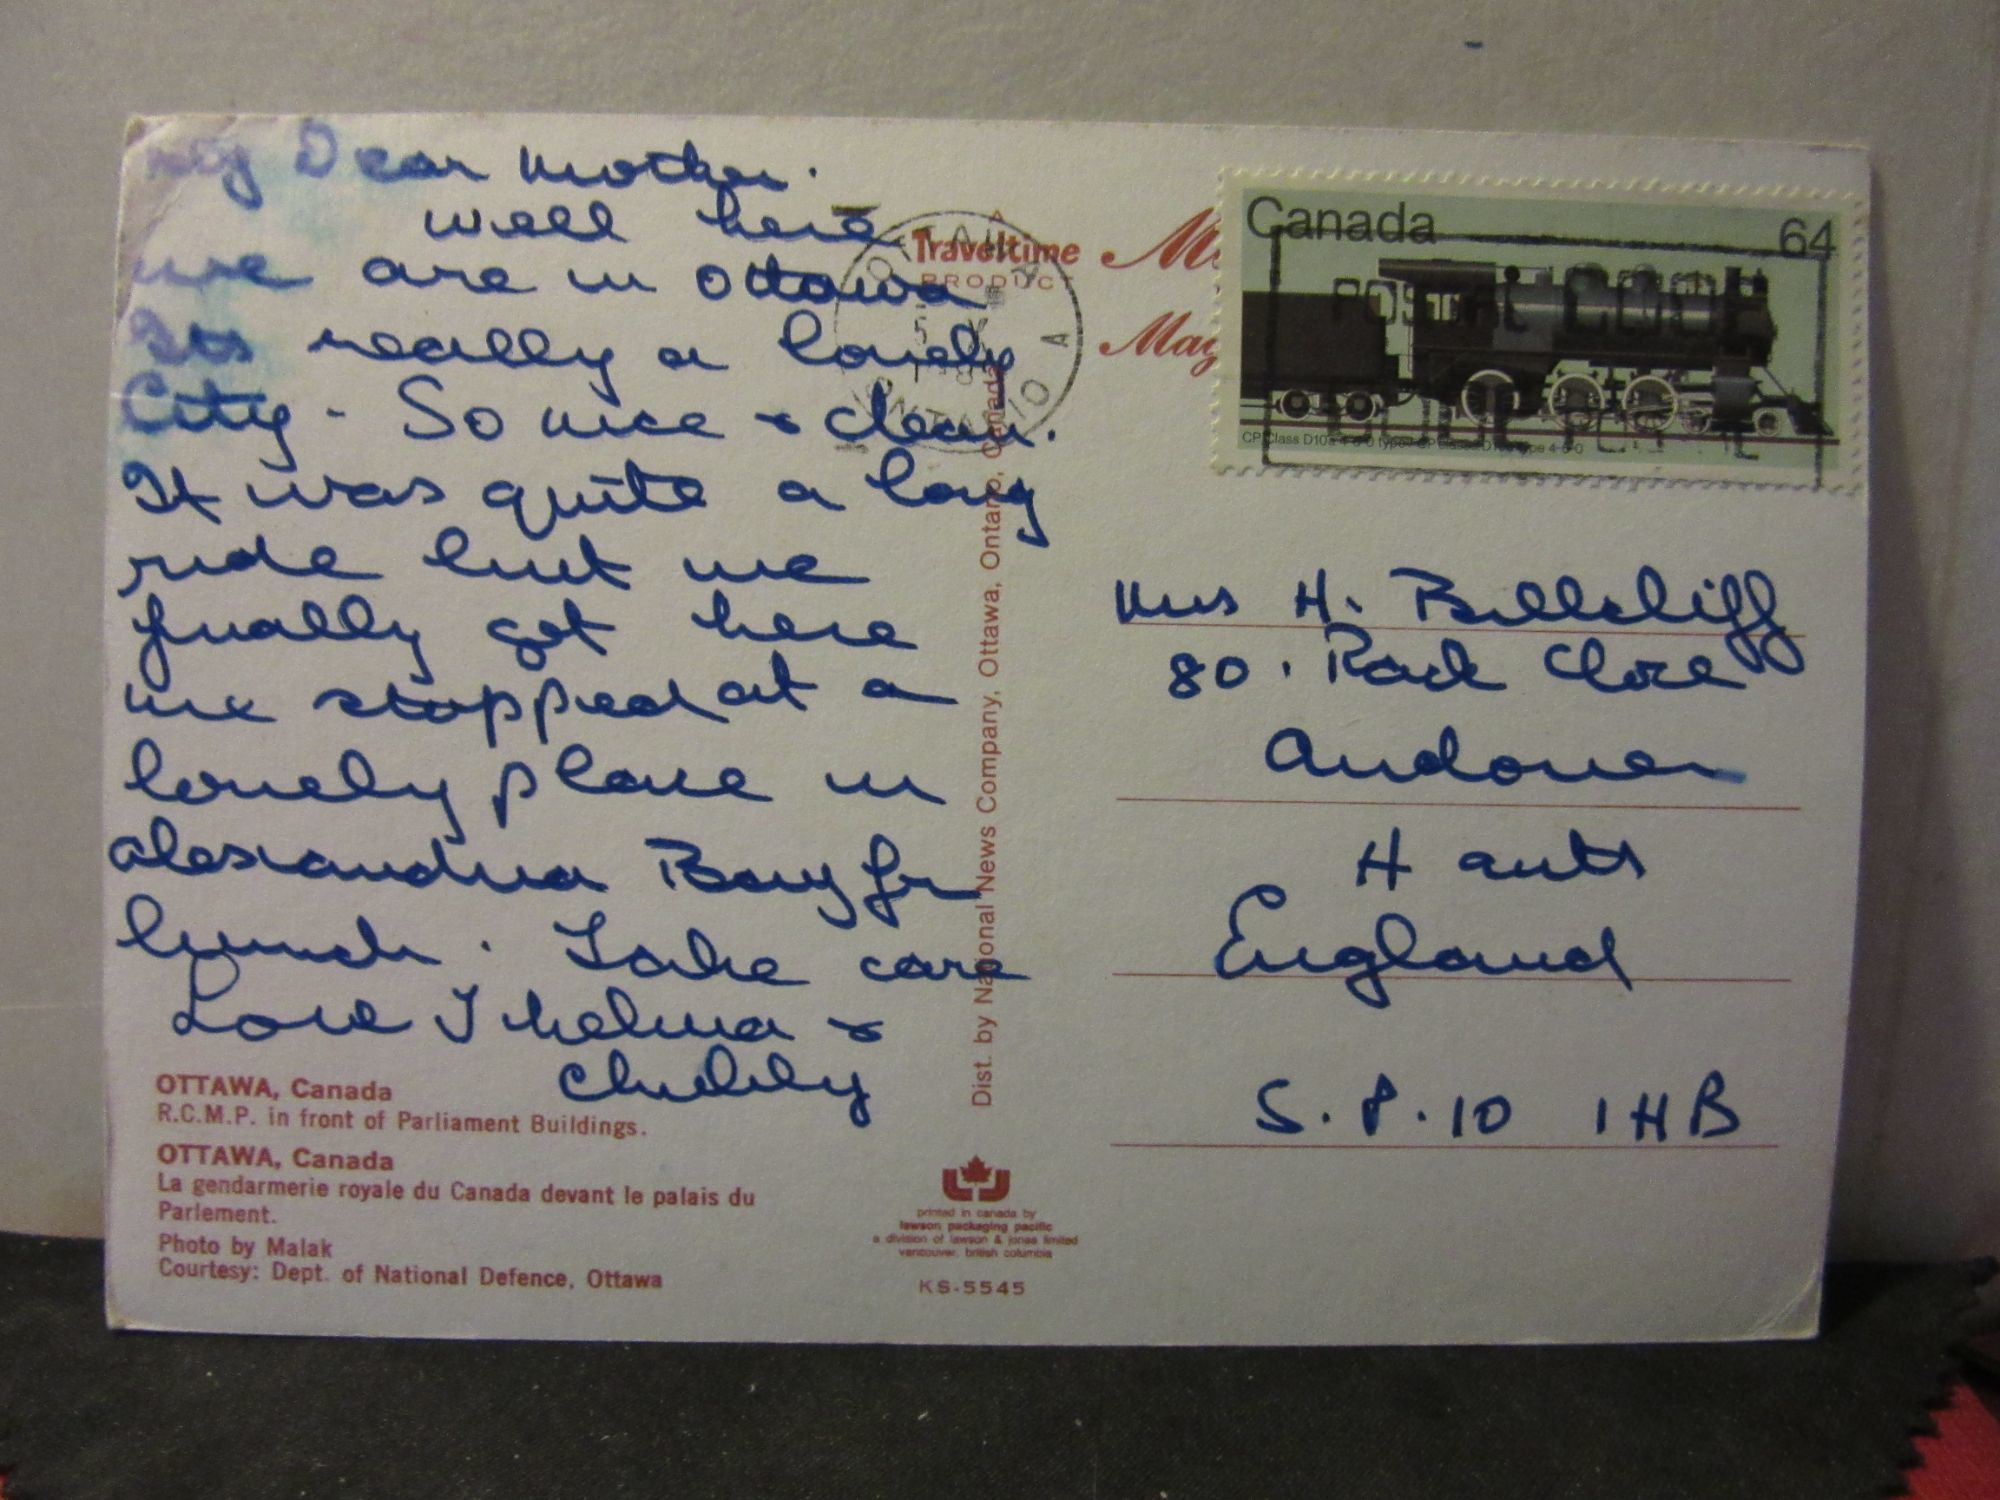 My Dear Mother.
Well here
we are in Ottawa
Its really a lovely
City. So nice & clean.
It was quite a long
ride but we
finally got here
we stopped at a
lovely place in
Alexandria Bay for
lunch. Take care
Love Thelma &
Chubby
OTTAWA, Canada
R.C.M.P. in front of Parliament Buildings.
OTTAWA, Canada
La gendarmerie royale du Canada devant le palais du
Parlement.
Photo by Malak
Courtesy: Dept. of National Defence, Ottawa
A
Traveltime
PRODUCT
OTTAWA
5
A
ONTARIO
Dist. by National News Company, Ottawa, Ontario, Canada
printed in canada by
lawson packaging pacific
a division of lawson & jones limited
vancouver, british columbia
KS-5545
Canada 64
POSTAL CODE
CP Class D10a 4-6-0 type
Mrs H. Billcliff
80. Rack Close
Andover
Hants
England
S.P.10 1HB